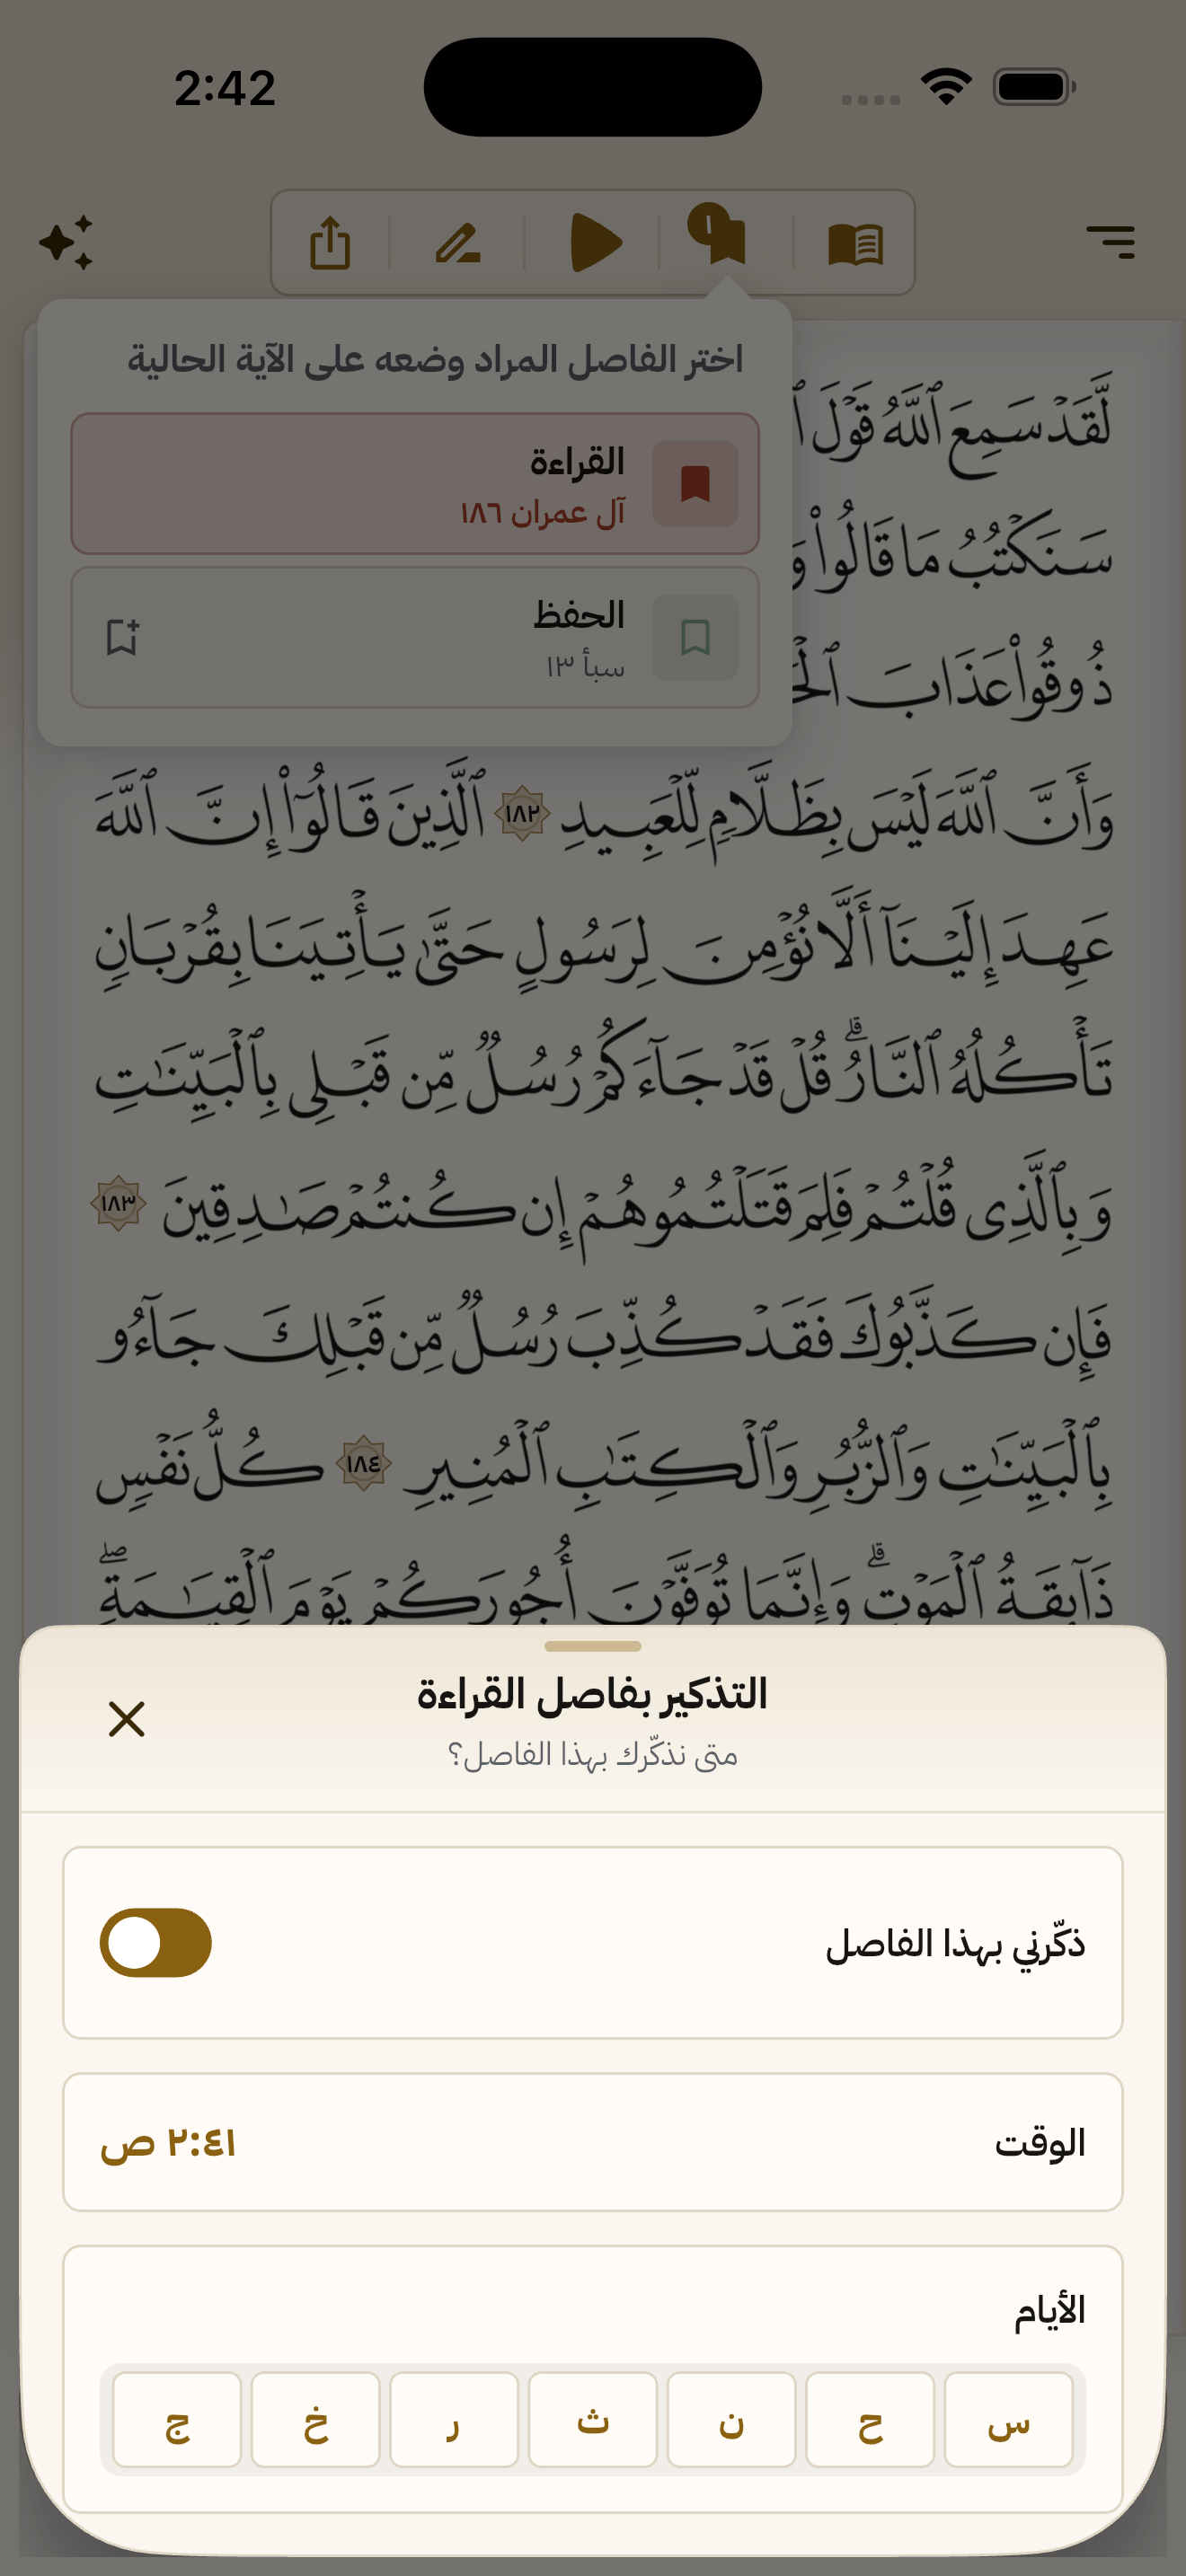 2:42
١
اختر الفاصل المراد وضعه على الآية الحالية
القراءة
آل عمران ١٨٦
الحفظ
سبأ ١٣
لَّقَدۡ سَمِعَ ٱللَّهُ قَوۡلَ
سَنَكۡتُبُ مَا قَالُواْ
ذُوقُواْ عَذَابَ
وَأَنَّ ٱللَّهَ لَيۡسَ بِظَلَّامٖ لِّلۡعَبِيدِ ١٨٢ ٱلَّذِينَ قَالُوٓاْ إِنَّ ٱللَّهَ
عَهِدَ إِلَيۡنَآ أَلَّا نُؤۡمِنَ لِرَسُولٍ حَتَّىٰ يَأۡتِيَنَا بِقُرۡبَانٖ
تَأۡكُلُهُ ٱلنَّارُۗ قُلۡ قَدۡ جَآءَكُمۡ رُسُلٞ مِّن قَبۡلِي بِٱلۡبَيِّنَٰتِ
وَبِٱلَّذِي قُلۡتُمۡ فَلِمَ قَتَلۡتُمُوهُمۡ إِن كُنتُمۡ صَٰدِقِينَ ١٨٣
فَإِن كَذَّبُوكَ فَقَدۡ كُذِّبَ رُسُلٞ مِّن قَبۡلِكَ جَآءُو
بِٱلۡبَيِّنَٰتِ وَٱلزُّبُرِ وَٱلۡكِتَٰبِ ٱلۡمُنِيرِ ١٨٤ كُلُّ نَفۡسٖ
ذَآئِقَةُ ٱلۡمَوۡتِۗ وَإِنَّمَا تُوَفَّوۡنَ أُجُورَكُمۡ يَوۡمَ ٱلۡقِيَٰمَةِۖ
التذكير بفاصل القراءة
متى نذكّرك بهذا الفاصل؟
ذكّرني بهذا الفاصل
الوقت
٢:٤١ ص
الأيام
س ح ن ث ر خ ج